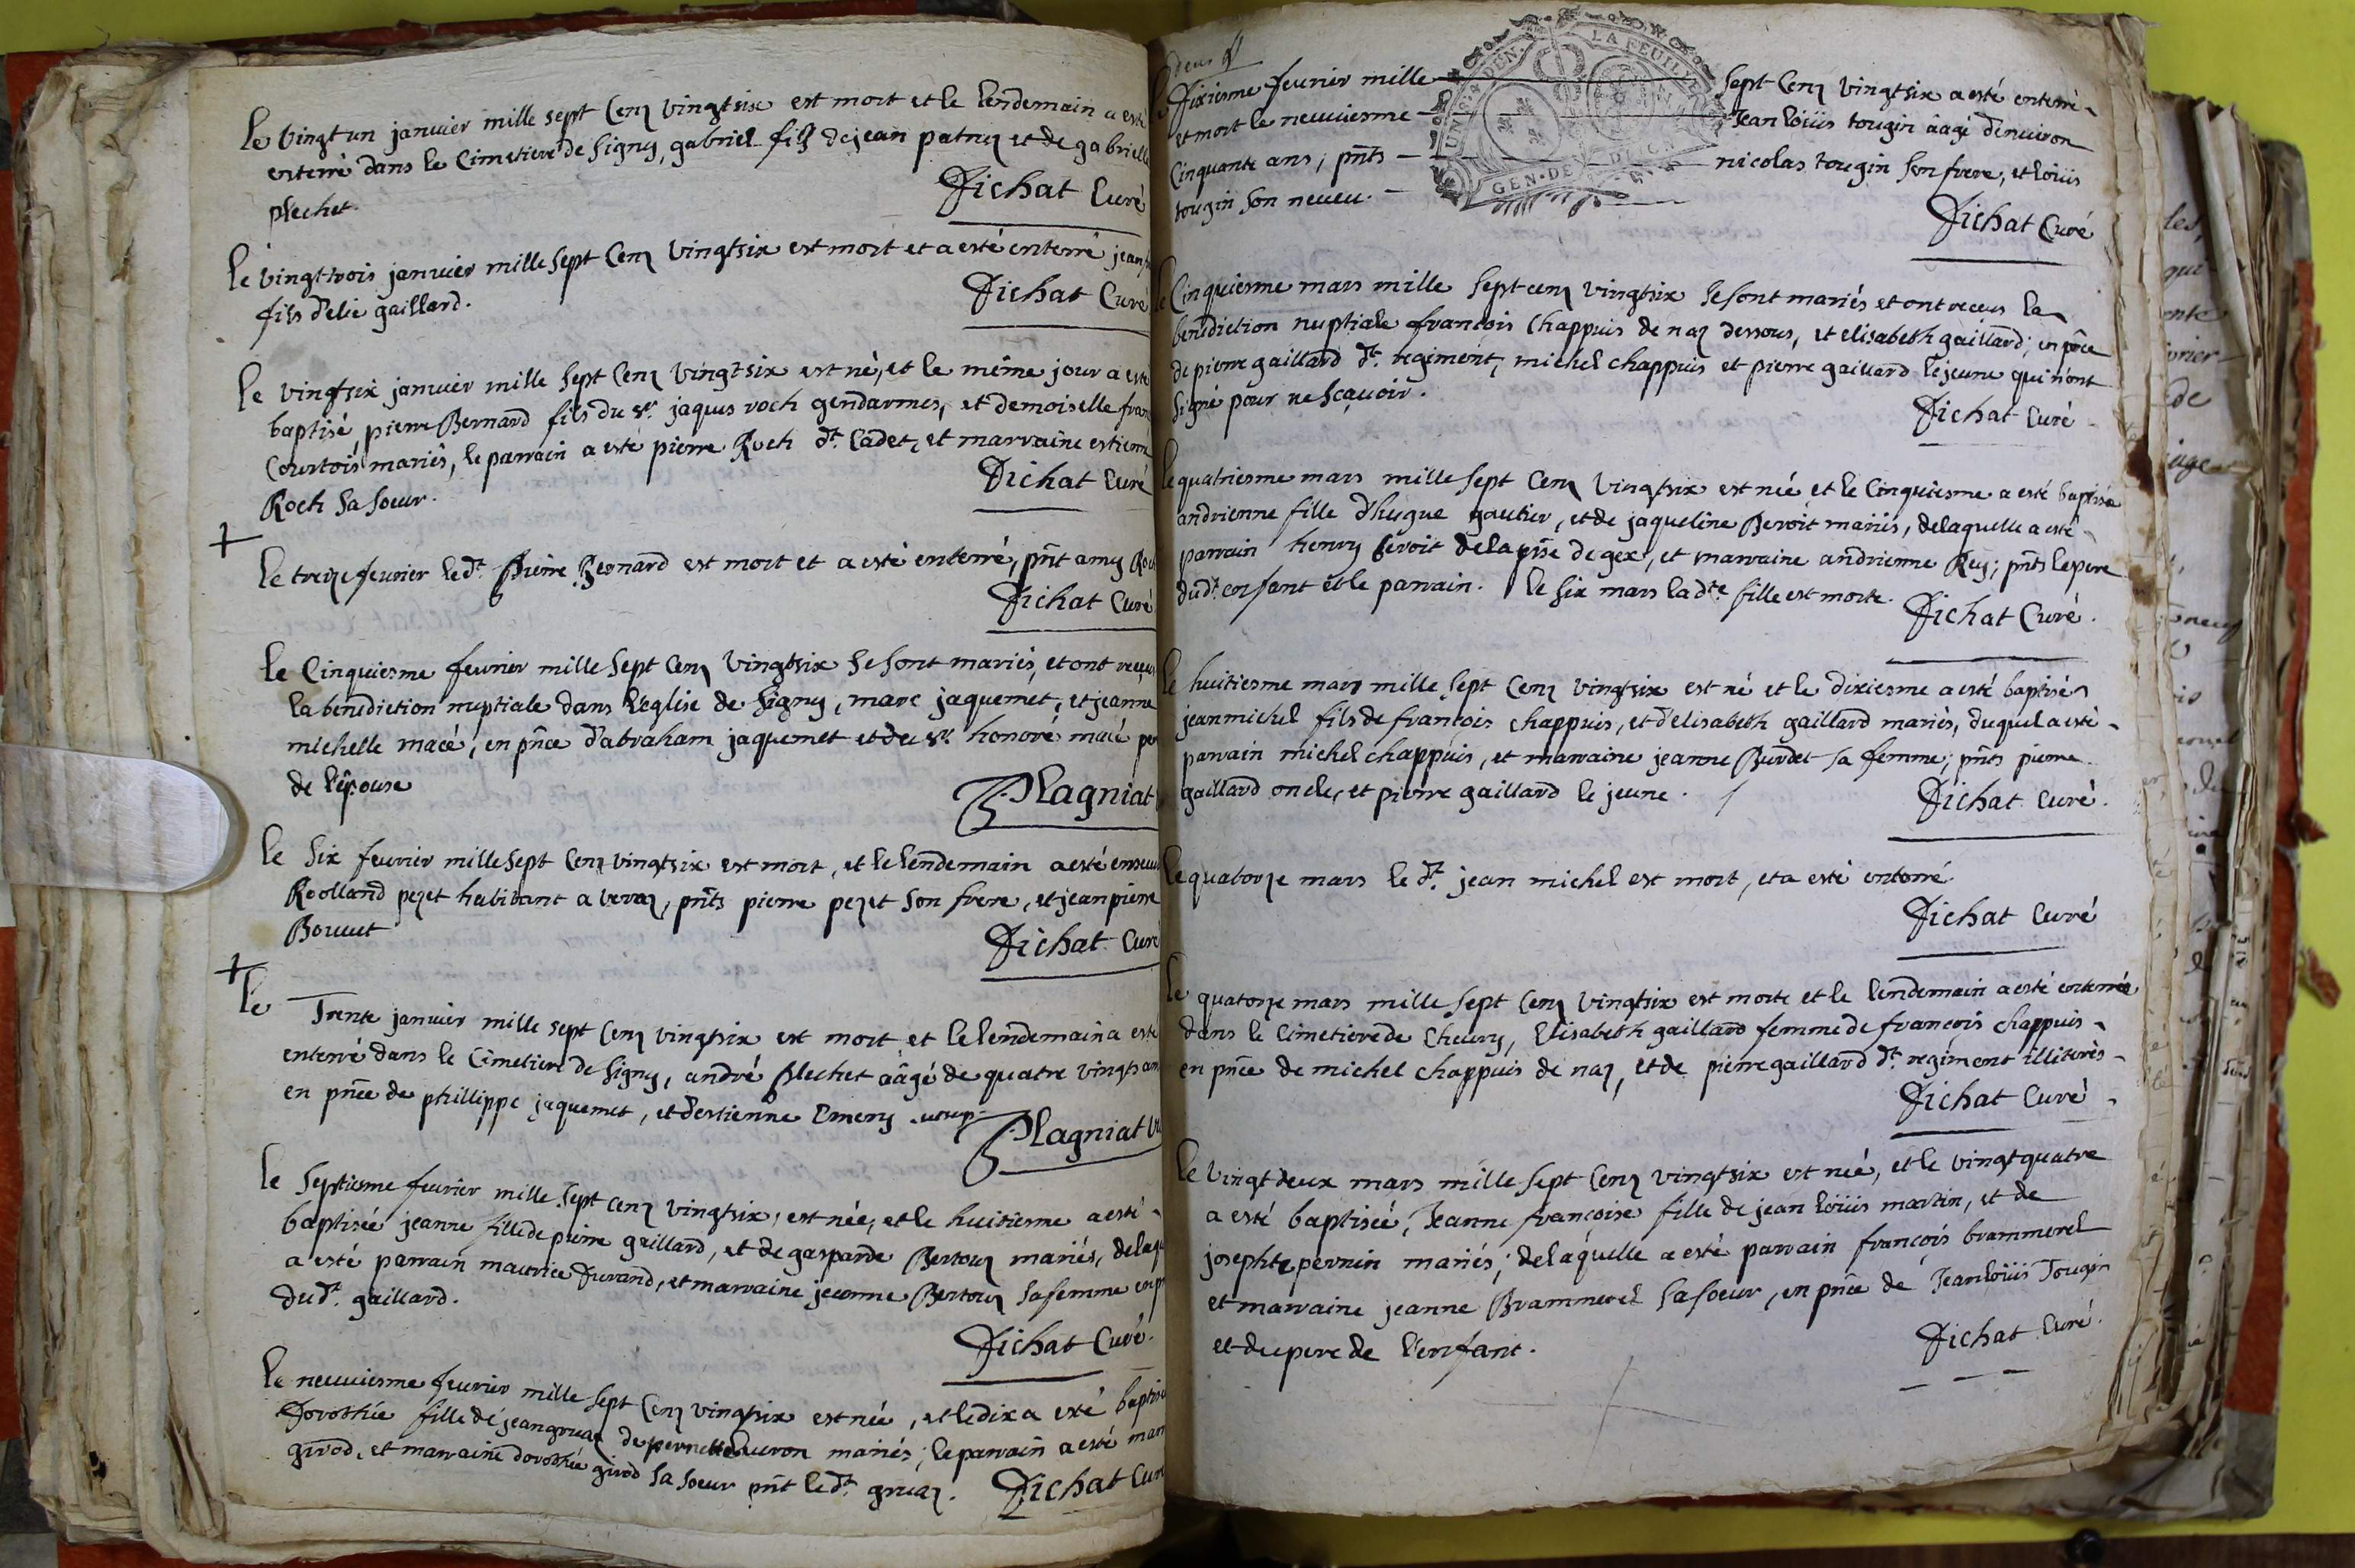 le vingt un janvier mille sept Cenz vingtsix est mort et le lendemain a esté
enterré dans le Cimetiere de Signy, gabriel filz de jean patruz et de gabrielle
plechet.
Fichat Curé
le vingt trois janvier mille sept Cenz vingtsix est mort et a esté enterré jean
fils d'elie gaillard.
Fichat Curé
le vingtsix janvier mille sept Cenz vingtsix est né, et le même jour a esté
baptisé, pierre Bernard fils du sr. jaques roch gendarmes, et demoiselle fran
Courtois mariés, le parrain a esté pierre Roch dt. Cadet, et marraine estienne
Roch sa soeur.
Fichat Curé
+
le treize fevrier ledt. Pierre Bernard est mort et a esté enterré, pnt amy Roch
Fichat Curé
le Cinquiesme fevrier mille sept Cenz vingtsix se sont mariés, et ont receu
la benediction nuptiale dans l'eglise de Signy, marc jaquemet, et jeanne
michelle macé, en pnce d'abraham jaquemet et du sr. honoré macé per
de l'epouse
Plagniat
le six fevrier mille sept Cenz vingtsix est mort, et le lendemain a esté ensev
Rolland pezet habitant a veraz, pnts pierre pezet son frere, et jean pierre
Bouvet
Fichat Curé
+
le Trente janvier mille sept Cenz vingtsix est mort et le lendemain a esté
enterré dans le Cimetiere de Signy, andré Plechet aâgé de quatre vingts ans
en pnce de phillippe jaquemet, et d'estienne Emery
Plagniat
le septiesme fevrier mille sept cenz vingtsix, est née, et le huitiesme a esté
baptisée jeanne fille de pierre gaillard, et de gasparde Bertouz mariés, delaqu
a esté parrain maurice Durand, et marraine jeanne Bertouz sa femme en p
dudt. gaillard.
Fichat Curé.
le neuviesme fevrier mille sept Cenz vingtsix est née, et le dix a esté baptisé
Dorothée fille de jean gruaz de pernette ducron mariés; le parrain a esté marc
girod, et marraine dorothée girod sa soeur pnt ledt. gruaz. Fichat Curé
deux
le Dixiesme fevrier mille sept Cenz vingtsix a esté enterré
et mort le neuviesme Jean loüis tougin aâgé d'environ
Cinquante ans, pnts nicolas tougin son frere, et loüis
tougin son neveu.
LA FEUILLE
GEN. DE DIJON
Fichat Curé
le Cinquiesme mars mille sept cenz vingtsix se sont mariés et ont receus la
benediction nuptiale francois Chappuis de naz dessous, et elisabeth gaillard; en pnce
de pierre gaillard dt. regiment, michel chappuis et pierre gaillard le jeune qui n'ont
signé pour ne sçavoir.
Fichat Curé
le quatriesme mars mille sept Cenz vingtsix est née et le Cinquiesme a esté baptisée
andrienne fille d'hugue gautier, et de jaqueline Beroit mariés, delaquelle a esté
parrain henry beroit delapsse de gex, et marraine andrienne Rey; pnts le pere
dudt. enfant et le parrain. le six mars ladte. fille est morte.
Fichat Curé.
le huitiesme mars mille sept Cenz vingtsix est né et le dixiesme a esté baptisé
jean michel fils de francois chappuis, et d'elisabeth gaillard mariés, duquel a esté
parrain michel chappuis, et marraine jeanne Burdet sa femme; pnts pierre
gaillard oncle, et pierre gaillard le jeune.
Fichat Curé.
le quatorze mars ledt. jean michel est mort, et a esté enterré.
Fichat Curé
le quatorze mars mille sept Cenz vingtsix est morte et le lendemain a esté enterrée
dans le Cimetiere de Chevry, Elisabeth gaillard femme de françois chappuis
en pnce de michel chappuis de naz, et de pierre gaillard dt. regiment illiterés
Fichat Curé
le vingt deux mars mille sept Cenz vingtsix est née, et le vingtquatre
a esté baptisée, Jeanne françoise fille de jean loüis martin, et de
josephte perrin mariés; delaquelle a esté parrain françois brammerel
et marraine jeanne Brammerel sa soeur, en pnce de Jean loüis Tougin
et du pere de l'enfant.
Fichat Curé.